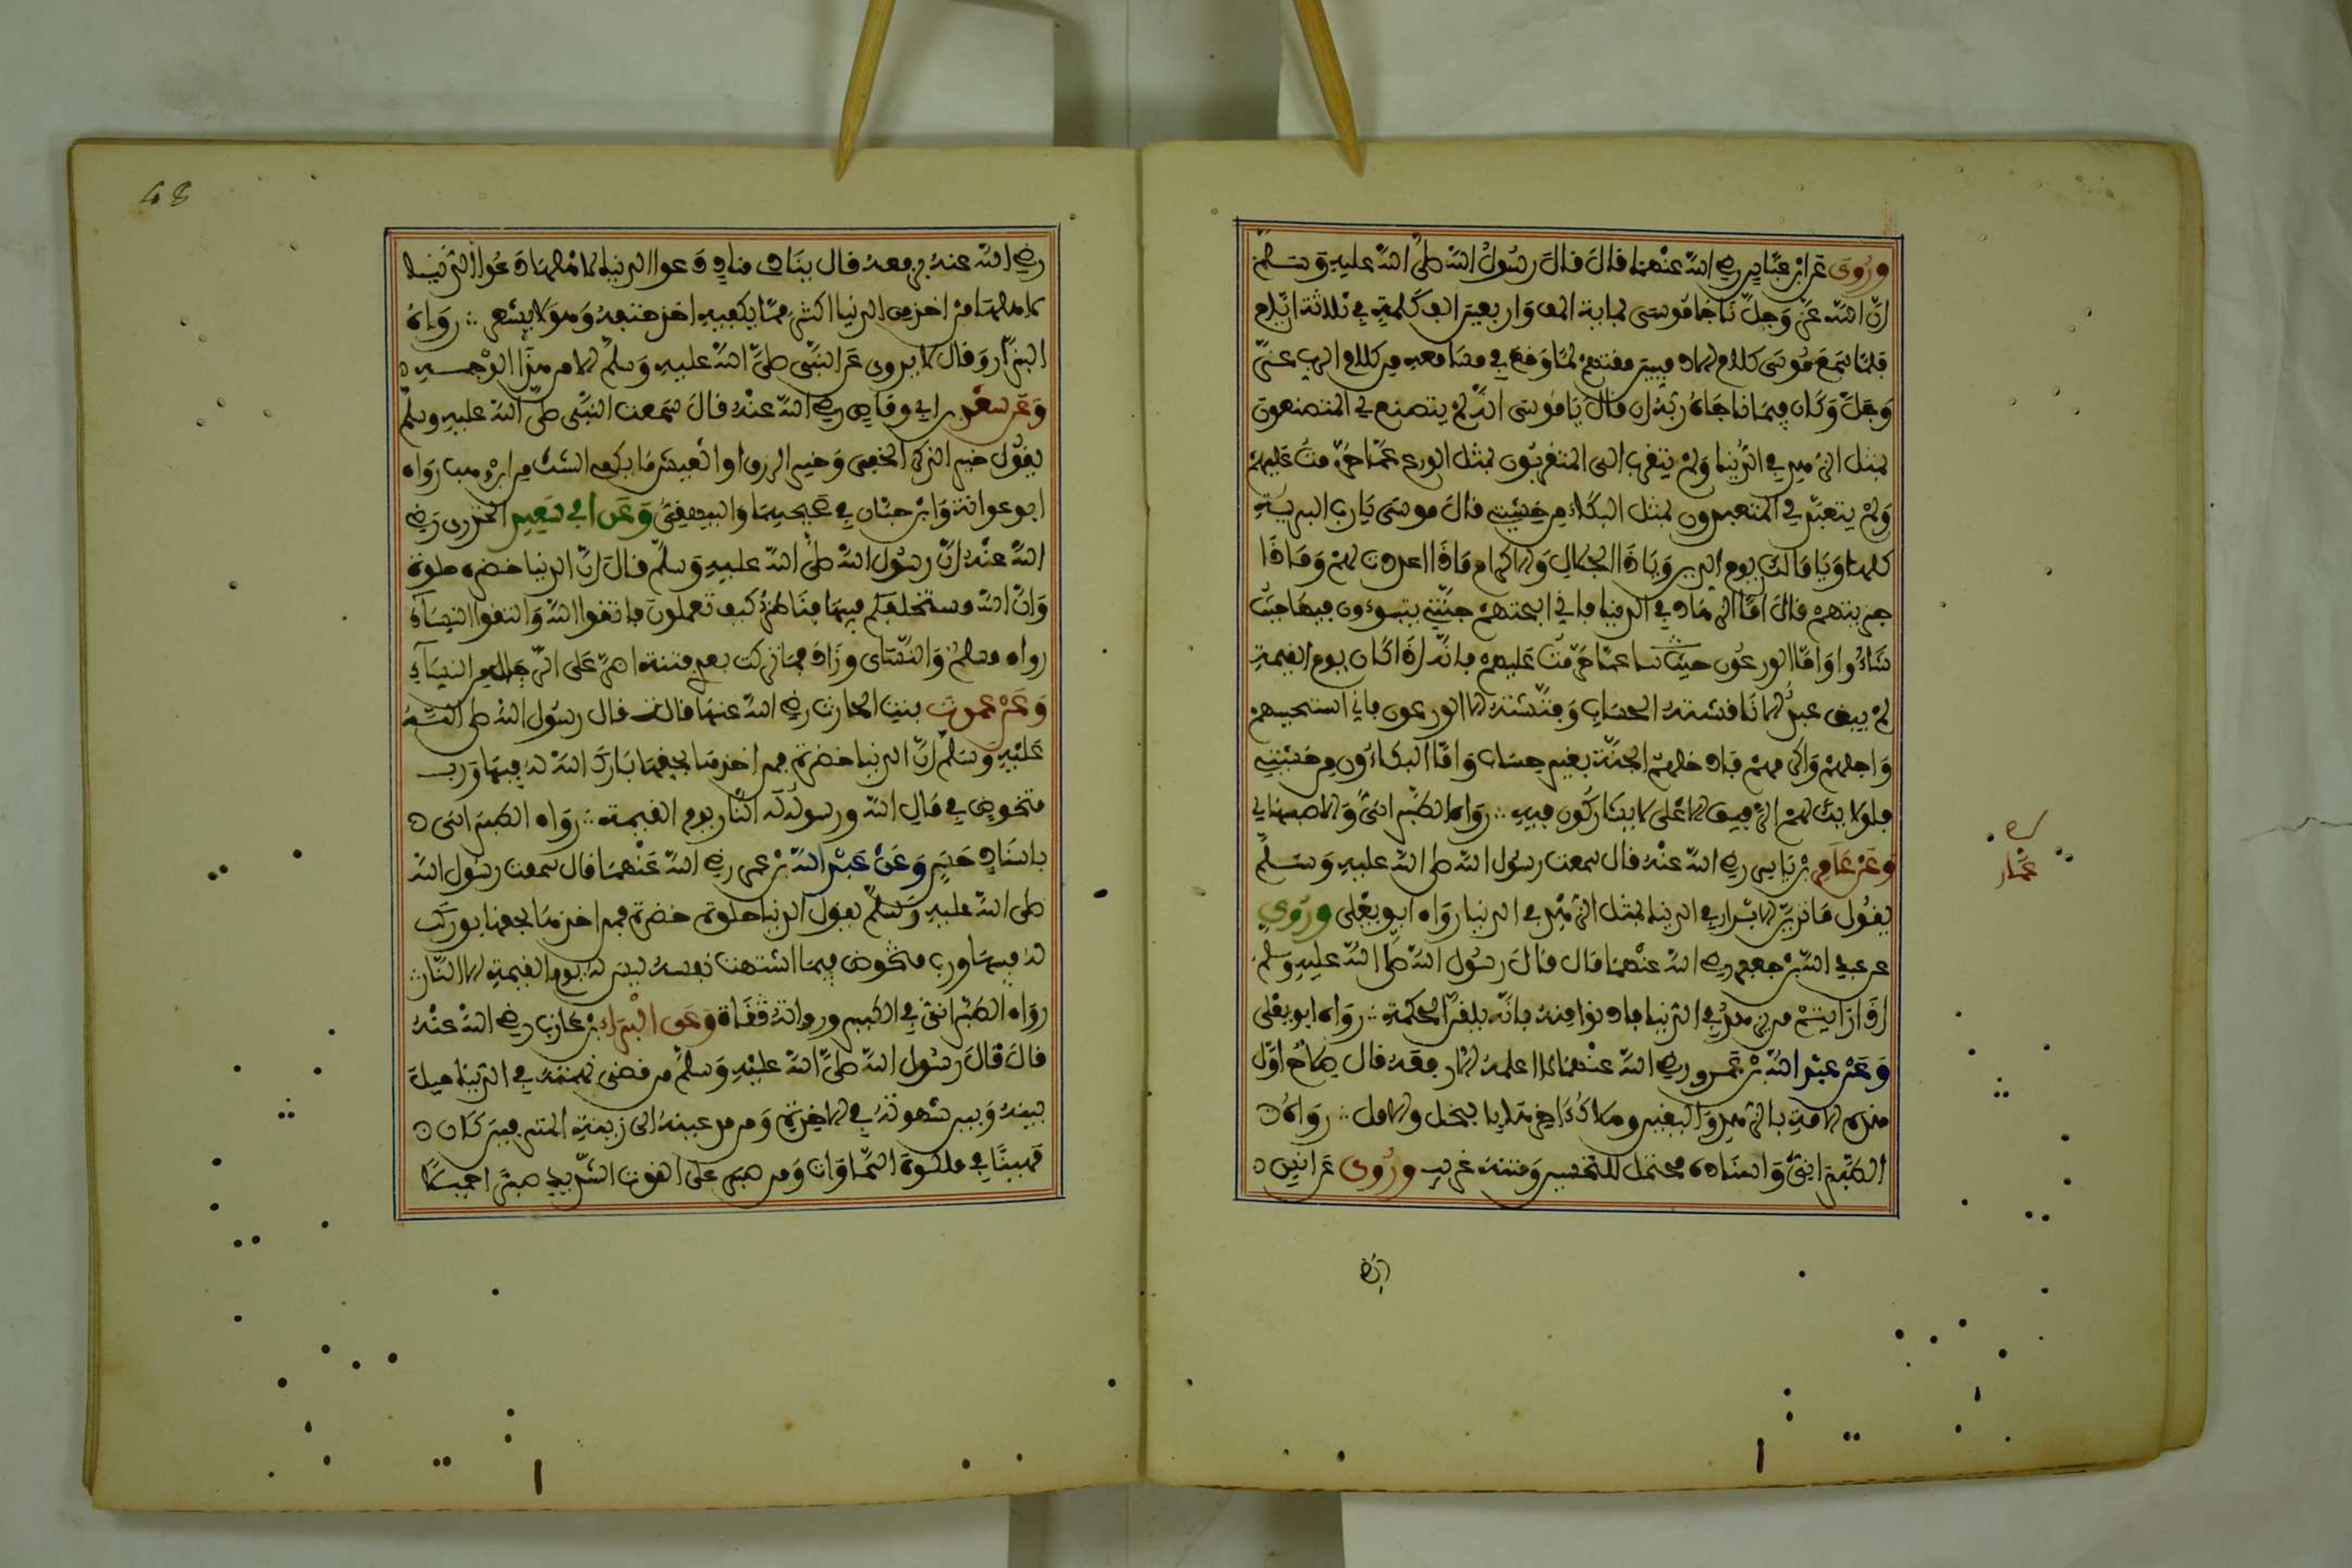 وَرُوِيَ عَنِ ابْنِ عَبَّاسٍ رضي الله عنهما قال قال رسول الله صلى الله عليه وسلم
إن الله عز وجل ناجا موسى بماية ألف واربعين الف كلمة في ثلاثة ايام
فلما سمع موسى كلام الادميين مقتهم لما وقع في مسامعه من كلام الرب عز
وجل وكان فيما ناجاه ربه ان قال يا موسى انه لم يتصنع لي المتصنعون
بمثل الزهد في الدنيا ولم يتقرب الي المتقربون بمثل الورع عما حرمت عليهم
ولم يتعبد لي المتعبدون بمثل البكاء من خشيتي قال موسى يا رب البرية
كلها ويا مالك يوم الدين ويا ذا الجلال والاكرام ماذا اعددت لهم وماذا
جزيتهم قال اما الزهاد في الدنيا فاني ابحتهم جنتي يتبوءون فيها حيث
شاءوا واما الورعون عما حرمت عليهم فانه اذا كان يوم القيمة
لم يبق عبد الا ناقشته الحساب وفتشته الا الورعون فاني استحييهم
واجلهم واكرمهم فادخلهم الجنة بغير حساب واما البكاءون من خشيتي
فاولائك لهم الرفيق الاعلى لا يشاركون فيه رواه الطبراني والاصبهاني
وعن عمار بن ياسر رضي الله عنه قال سمعت رسول الله صلى الله عليه وسلم
يقول ما تزين الابرار في الدنيا بمثل الزهد في الدنيا رواه ابو يعلى وروي
عن عبد الله بن جعفر رضي الله عنهما قال قال رسول الله صلى الله عليه وسلم
اذا رايتم من يزهد في الدنيا فادنوا منه فانه يلقى الحكمة رواه ابو يعلى
وعن عبد الله بن عمرو رضي الله عنهما لا اعلمه الا رفعه قال صلاح اول
هذه الامة بالزهد واليقين وهلاك اخرها بالبخل والامل رواه
الطبراني واسناده محتمل للتحسين ومتنه غريب وروي عن انس
عمار
48
رضي الله عنه يرفعه قال ينادي مناد دعوا الدنيا لاهلها دعوا الدنيا
لاهلها من اخذ من الدنيا اكثر مما يكفيه اخذ حتفه وهو لا يشعر رواه
البزار وقال لا يروى عن النبي صلى الله عليه وسلم الا من هذا الوجه
وعن سعد بن ابي وقاص رضي الله عنه قال سمعت النبي صلى الله عليه وسلم
يقول خير الذكر الخفي وخير الرزق او العيش ما يكفي الشك من ابن وهب رواه
ابو عوانة وابن حبان في صحيحيهما والبيهقي وعن ابي سعيد الخدري رضي
الله عنه ان رسول الله صلى الله عليه وسلم قال ان الدنيا خضرة حلوة
وان الله مستخلفكم فيها فناظر كيف تعملون فاتقوا الله واتقوا النساء
رواه مسلم والنسائي وزاد فما تركت بعدي فتنة اضر على الرجال من النساء
وعن عمرة بنت الحارث رضي الله عنها قالت قال رسول الله صلى الله
عليه وسلم ان الدنيا خضرة فمن اخذها بحقها بارك الله له فيها ورب
متخوض في مال الله ورسوله له النار يوم القيمة رواه الطبراني
باسناد حسن وعن عبد الله بن عمر رضي الله عنهما قال سمعت رسول الله
صلى الله عليه وسلم يقول الدنيا حلوة خضرة فمن اخذها بحقها بورك
له فيها ورب متخوض فيما اشتهت نفسه ليس له يوم القيمة الا النار
رواه الطبراني في الكبير ورواته ثقاة وعن البراء بن عازب رضي الله عنه
قال قال رسول الله صلى الله عليه وسلم من قضى نهمته في الدنيا حيل
بينه وبين شهوته في الاخرة ومن مد عينه الى زينة المترفين كان
مهينا في ملكوت السماوات ومن صبر على القوت الشديد صبرا جميلا